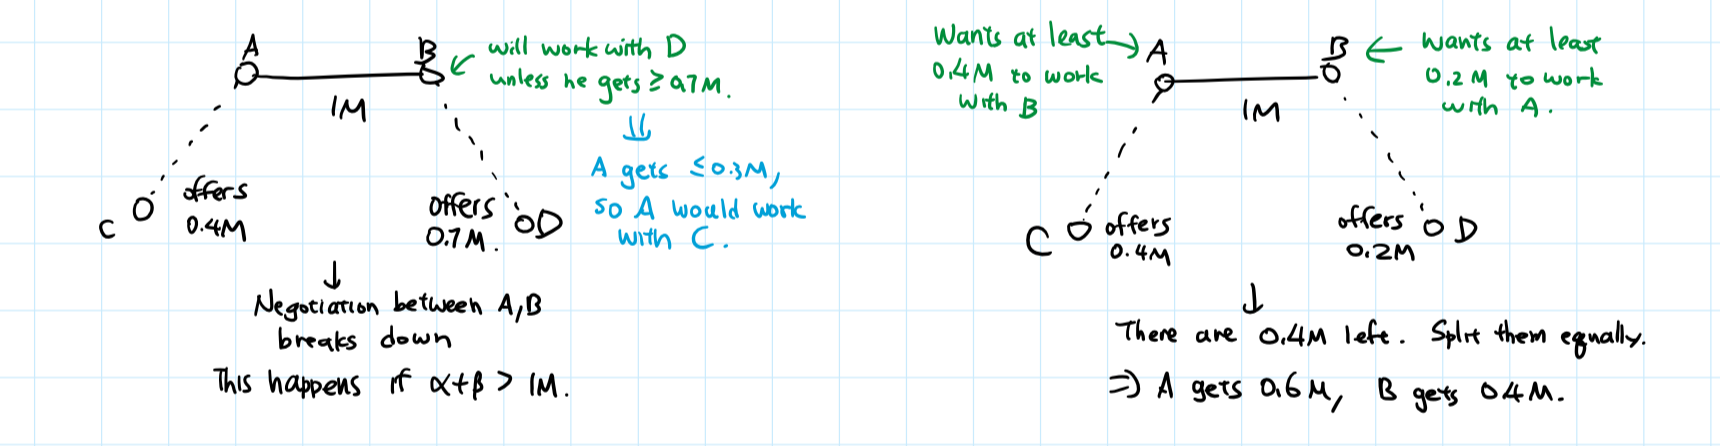 A
B
will work with D
unless he gets ≥ 0.7M.
1M
⇓
A gets ≤ 0.3M,
so A would work
with C.
C
offers
0.4M
offers
0.7M.
D
↓
Negotiation between A,B
breaks down
This happens if α+β > 1M.
Wants at least → A
0.4M to work
with B
B ← wants at least
0.2M to work
with A.
1M
C
offers
0.4M
offers
0.2M
D
↓
There are 0.4M left. Split them equally.
⇒ A gets 0.6M, B gets 0.4M.